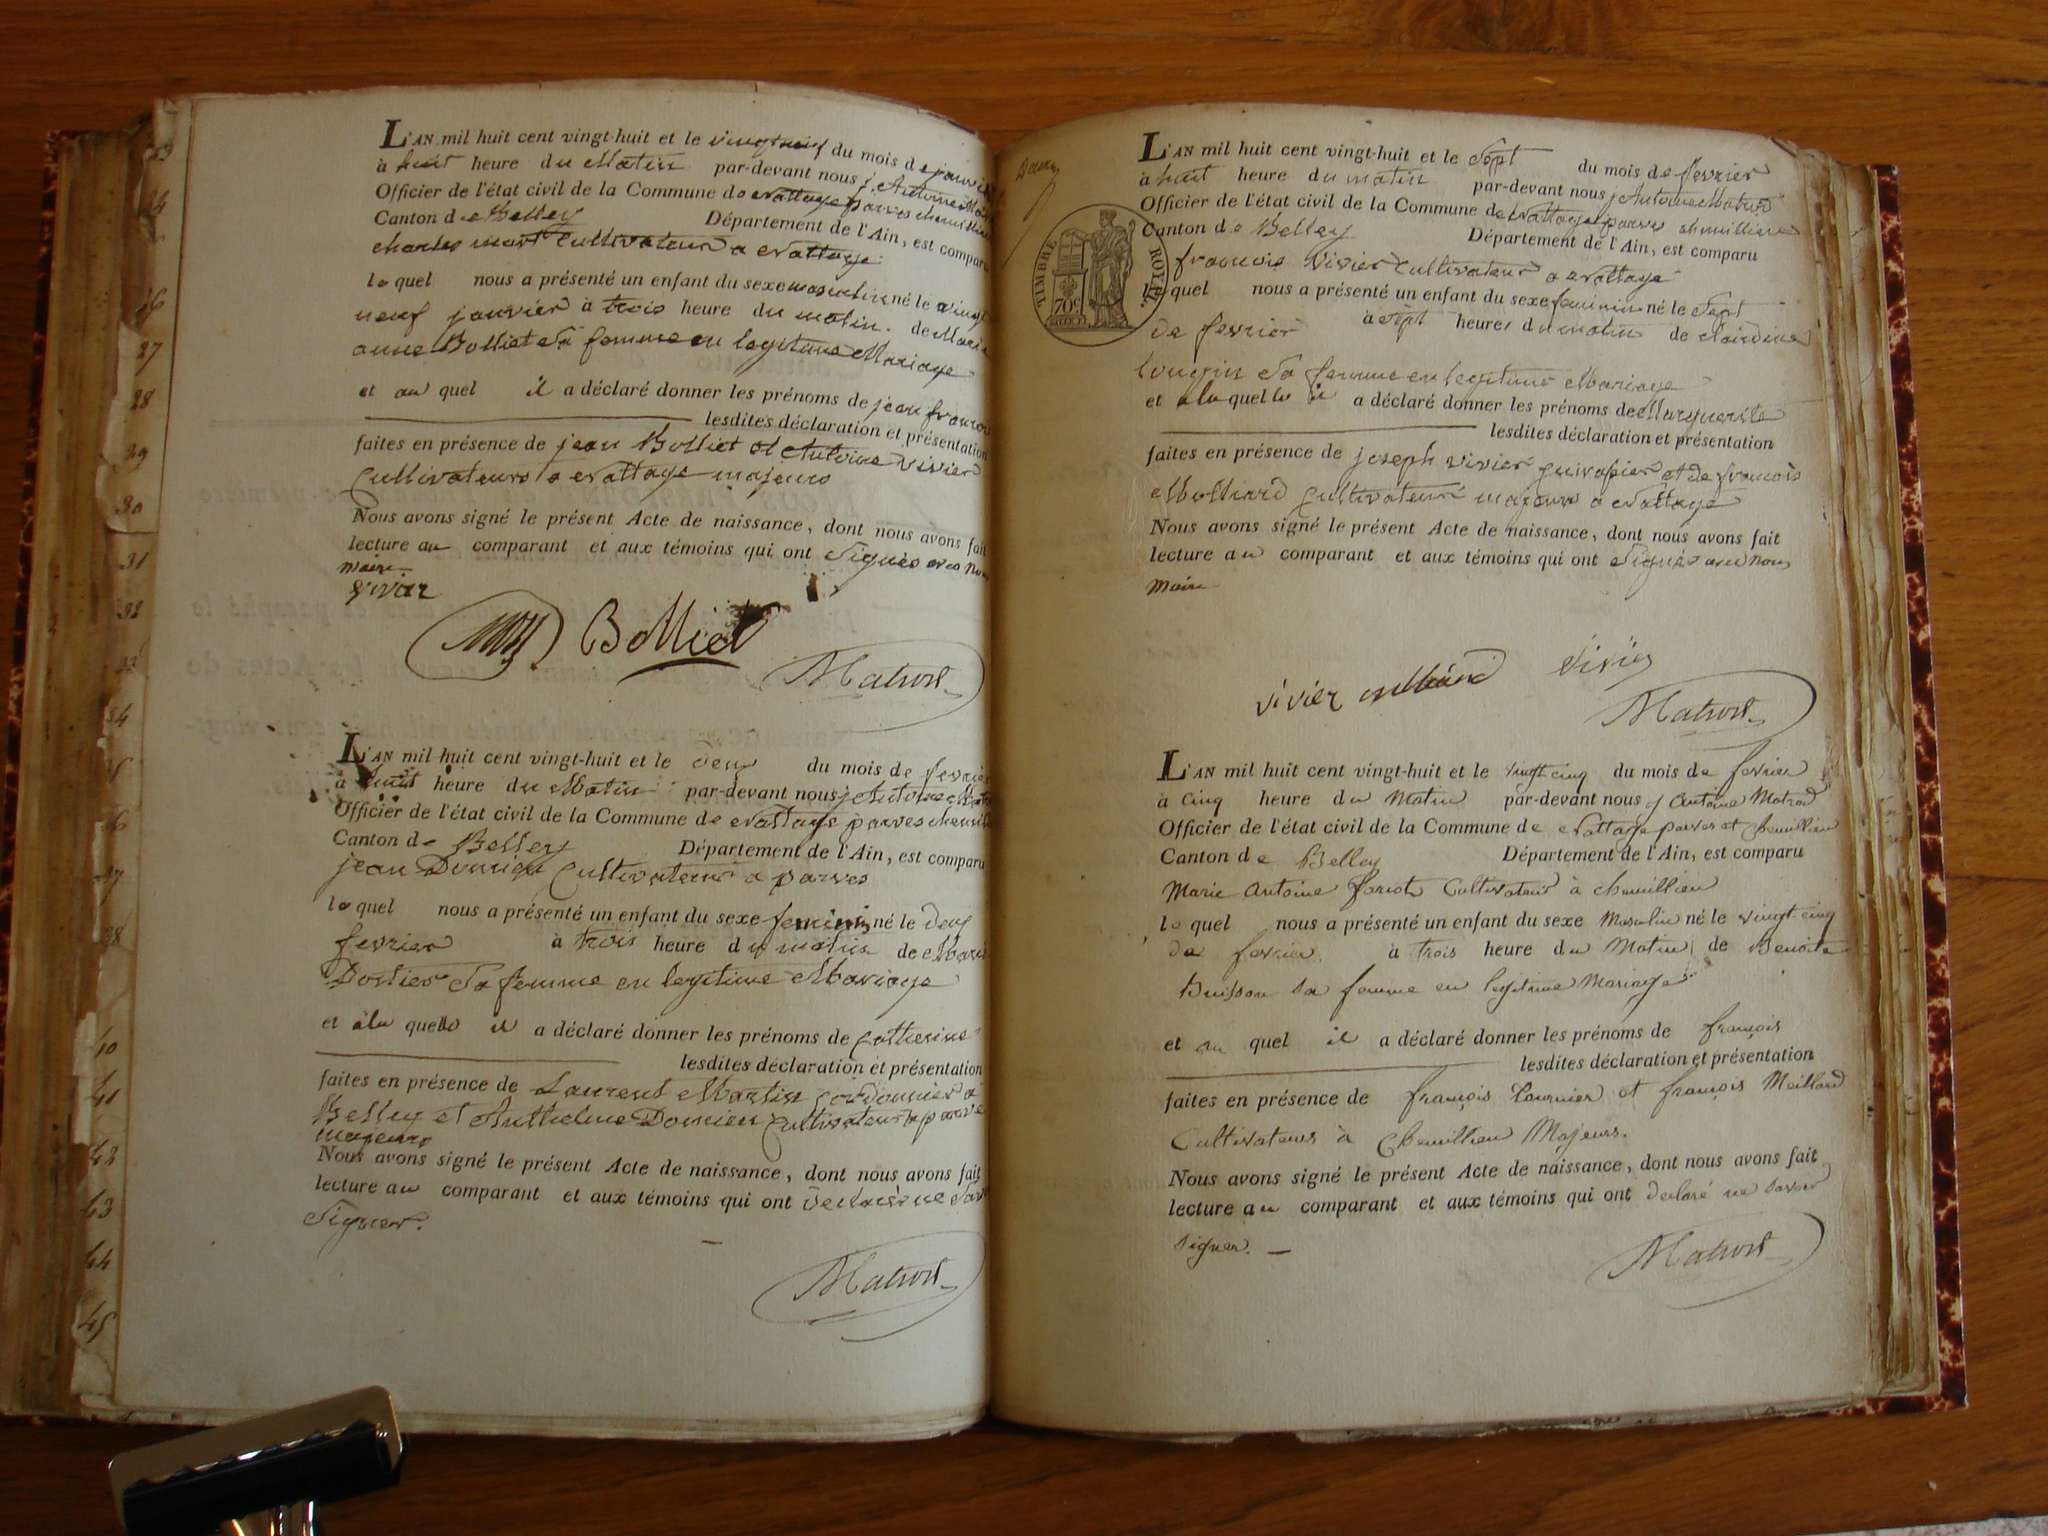 L'AN mil huit cent vingt-huit et le vingt neuf du mois de janvier
à huit heure du Matin par-devant nous j. Antoine
Officier de l'état civil de la Commune de nattage parves chemillieu
Canton de Belley Département de l'Ain, est comparu
charles cultivateur a nattage
lequel nous a présenté un enfant du sexe masculin né le vingt
neuf janvier à trois heure du matin. de Marie
anne Bolliet sa femme en legitime Mariage
et au quel il a déclaré donner les prénoms de jean francois
lesdites déclaration et présentation
faites en présence de jean Bolliet et Antoine vivier
Cultivateurs a nattage majeurs
Nous avons signé le présent Acte de naissance, dont nous avons fait
lecture au comparant et aux témoins qui ont signés avec nous
maire
vivier
Bolliet
Matrod
L'AN mil huit cent vingt-huit et le deux du mois de fevrier
à huit heure du Matin par-devant nous j Antoine
Officier de l'état civil de la Commune de nattage parves
Canton de Belley Département de l'Ain, est comparu
jean Cultivateur a parves
lequel nous a présenté un enfant du sexe feminin né le deux
fevrier à trois heure du matin de Marie
sa femme en legitime Mariage
et à la quelle il a déclaré donner les prénoms de catherine
lesdites déclaration et présentation
faites en présence de Laurent Martin cordonnier a
Belley et Anthelme Cultivateur a parves
majeurs
Nous avons signé le présent Acte de naissance, dont nous avons fait
lecture au comparant et aux témoins qui ont declaré ne
signer.
Matrod
TIMBRE ROYAL
70c
L'AN mil huit cent vingt-huit et le sept du mois de fevrier
à huit heure du matin par-devant nous j Antoine Matrod
Officier de l'état civil de la Commune de nattage parves chemillieu
Canton de Belley Département de l'Ain, est comparu
francois vivier Cultivateur a nattage
lequel nous a présenté un enfant du sexe feminin né le sept
de fevrier à sept heures du matin de claudine
sa femme en legitime Mariage
et a la quelle il a déclaré donner les prénoms de Marguerite
lesdites déclaration et présentation
faites en présence de joseph vivier et de francois
cultivateurs majeurs a nattage
Nous avons signé le présent Acte de naissance, dont nous avons fait
lecture au comparant et aux témoins qui ont signés avec nous
maire
vivier vivier
Matrod
L'AN mil huit cent vingt-huit et le vingt cinq du mois de fevrier
à cinq heure du Matin par-devant nous j Antoine Matrod
Officier de l'état civil de la Commune de nattage parves et chemillieu
Canton de Belley Département de l'Ain, est comparu
Marie Antoine Cultivateur à chemillieu
lequel nous a présenté un enfant du sexe Masculin né le vingt-cinq
de fevrier à trois heure du Matin de Benoite
Buisson sa femme en legitime Mariage
et au quel il a déclaré donner les prénoms de françois
lesdites déclaration et présentation
faites en présence de françois tournier et françois Moillard
Cultivateurs à Chemillieu Majeurs.
Nous avons signé le présent Acte de naissance, dont nous avons fait
lecture au comparant et aux témoins qui ont declaré ne savoir
signer.
Matrod